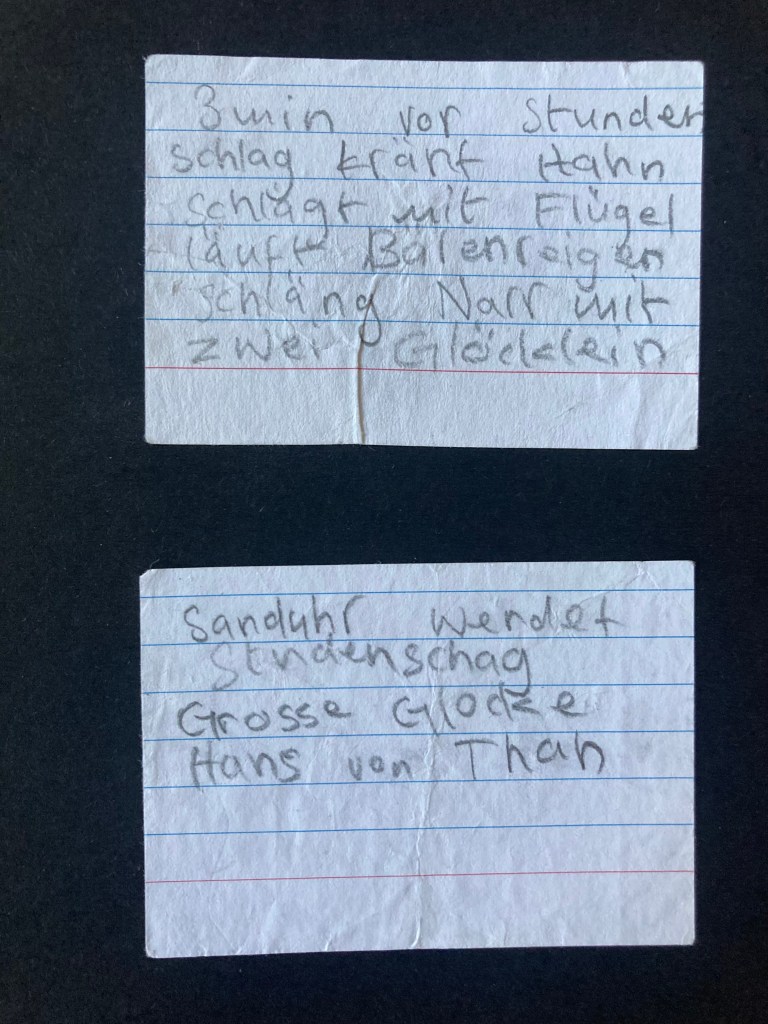 3min vor Stunden
schlag kränt Hahn
schlägt mit Flügel
läuft Bärenreigen
schläng Narr mit
zwei Glöcklein
Sanduhr wendet
Stndenschag
Grosse Glocke
Hans von Than